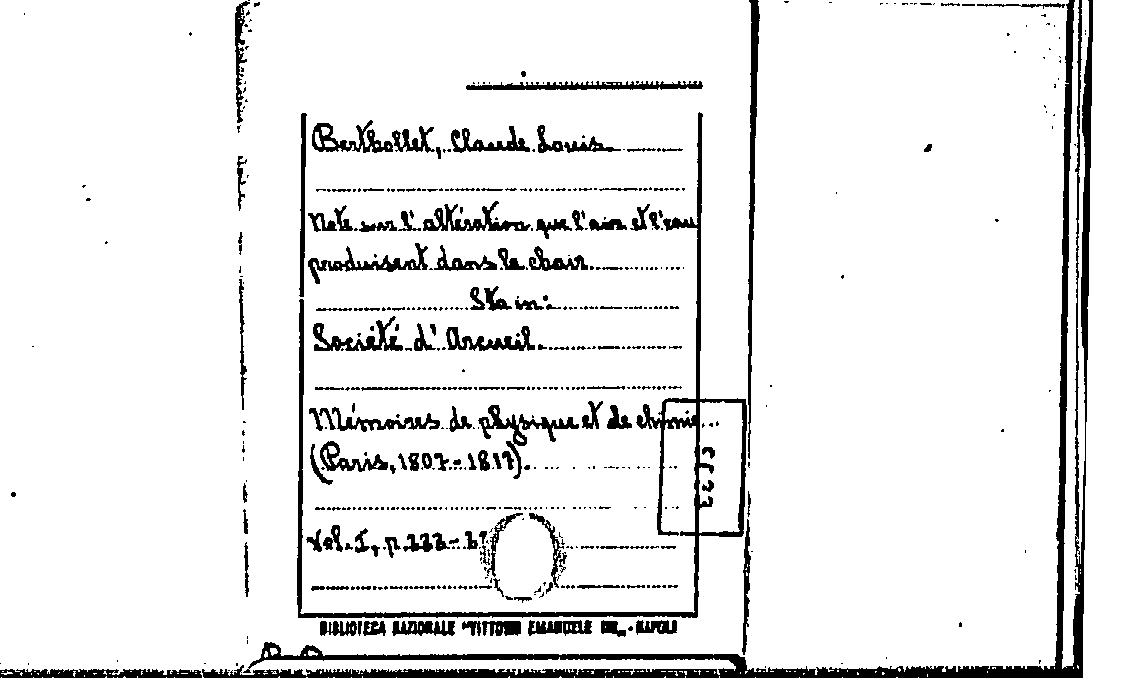 Berthollet, Claude Louis
Note sur l'altération que l'air et l'eau
produisent dans la chair
Sta in:
Société d'Arcueil.
Mémoires de physique et de chimie...
(Paris, 1807-1817).
Vol. I, p. 333-
BIBLIOTECA NAZIONALE "VITTORIO EMANUELE III" - NAPOLI